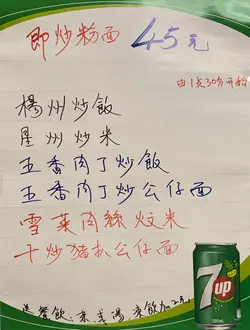 即炒粉面 45元
由1点30分开始
楊州炒飯
星州炒米
五香肉丁炒飯
五香肉丁炒公仔面
雪菜肉絲炆米
干炒猪扒公仔面
7up
送餐飲